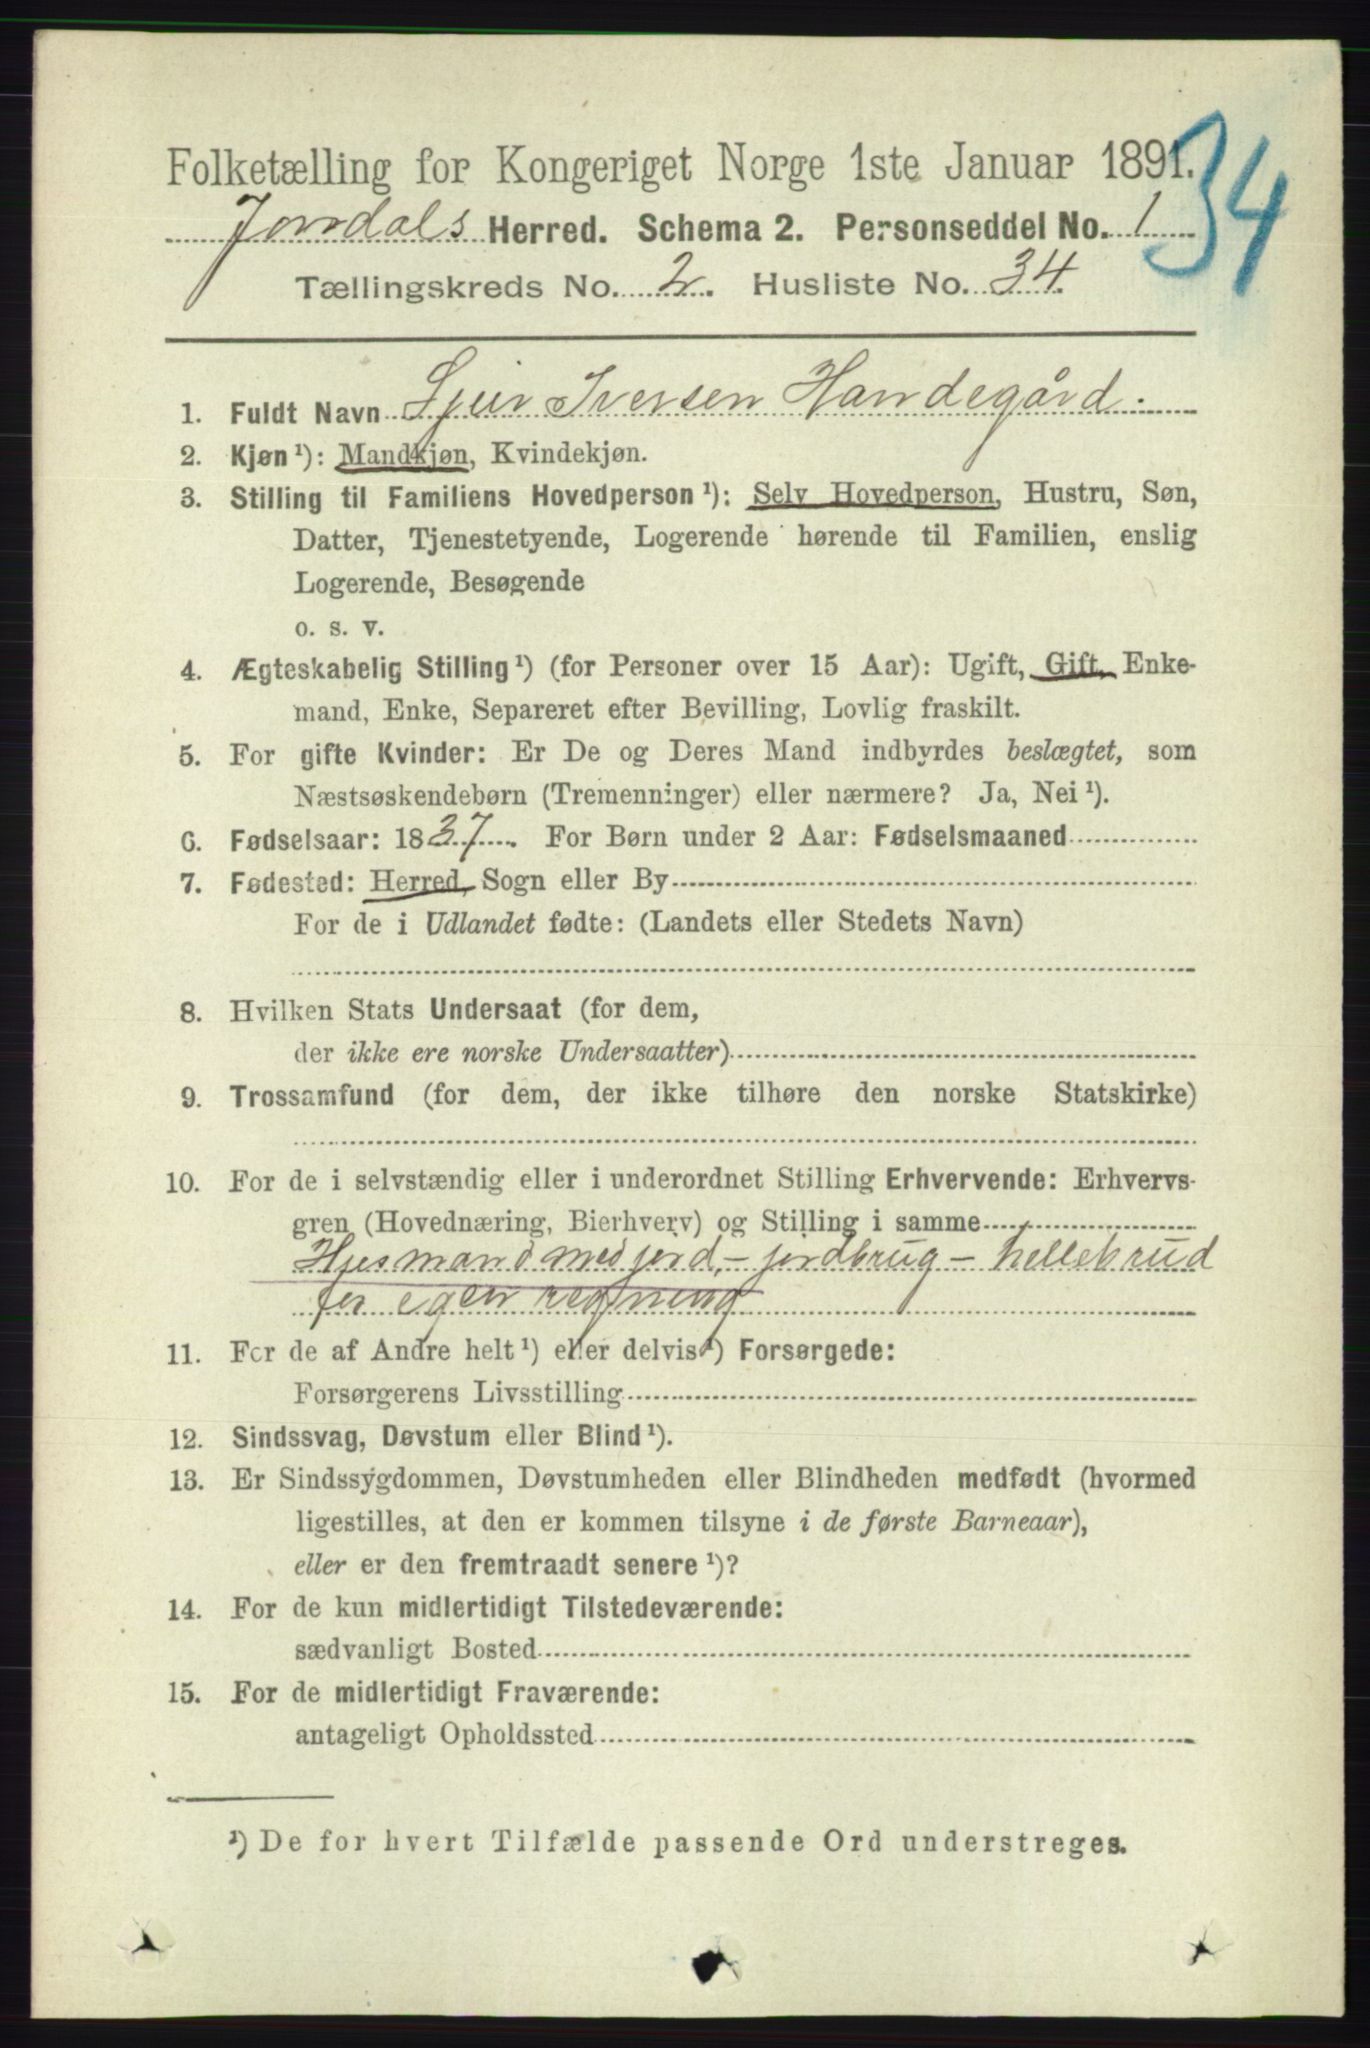 34
Folketælling for Kongeriget Norge 1ste Januar 1891.
Jondals Herred. Schema 2. Personseddel No. 1
Tællingskreds No. 2. Husliste No. 34.
1. Fuldt Navn Sjur Iversen Handegård.
2. Kjøn ¹): Mandkjøn, Kvindekjøn.
3. Stilling til Familiens Hovedperson ¹): Selv Hovedperson, Hustru, Søn,
Datter, Tjenestetyende, Logerende hørende til Familien, enslig
Logerende, Besøgende
o. s. v.
4. Ægteskabelig Stilling ¹) (for Personer over 15 Aar): Ugift, Gift, Enke-
mand, Enke, Separeret efter Bevilling, Lovlig fraskilt.
5. For gifte Kvinder: Er De og Deres Mand indbyrdes beslægtet, som
Næstsøskendebørn (Tremenninger) eller nærmere? Ja, Nei ¹).
6. Fødselsaar: 1837. For Børn under 2 Aar: Fødselsmaaned
7. Fødested: Herred, Sogn eller By
For de i Udlandet fødte: (Landets eller Stedets Navn)
8. Hvilken Stats Undersaat (for dem,
der ikke ere norske Undersaatter)
9. Trossamfund (for dem, der ikke tilhøre den norske Statskirke)
10. For de i selvstændig eller i underordnet Stilling Erhvervende: Erhvervs-
gren (Hovednæring, Bierhverv) og Stilling i samme
Husmand med jord, - jordbrug - hellebrud
for egen regning
11. For de af Andre helt ¹) eller delvis ¹) Forsørgede:
Forsørgerens Livsstilling
12. Sindssvag, Døvstum eller Blind ¹).
13. Er Sindssygdommen, Døvstumheden eller Blindheden medfødt (hvormed
ligestilles, at den er kommen tilsyne i de første Barneaar),
eller er den fremtraadt senere ¹)?
14. For de kun midlertidigt Tilstedeværende:
sædvanligt Bosted
15. For de midlertidigt Fraværende:
antageligt Opholdssted
¹) De for hvert Tilfælde passende Ord understreges.